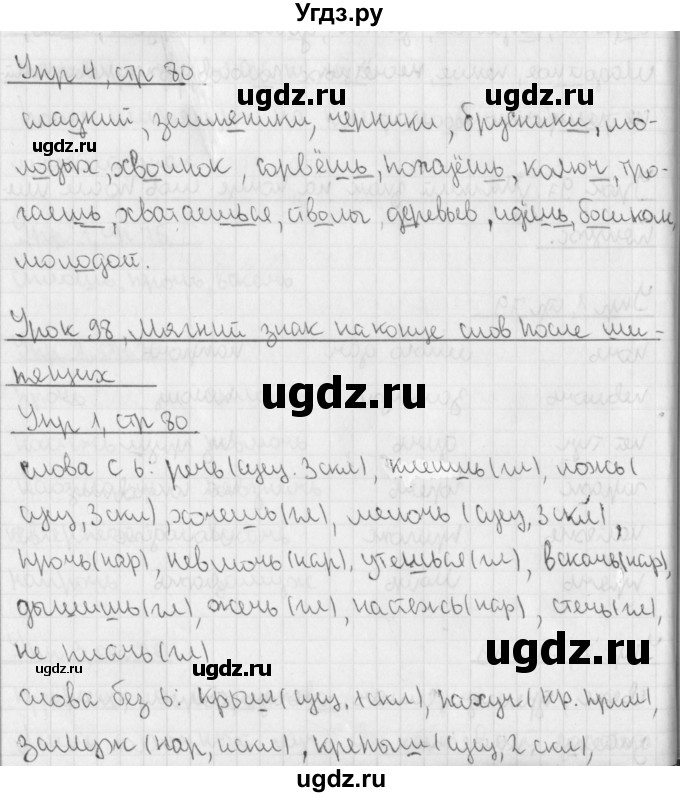 Угдз.ру
Упр 4, стр 80
сладкий, земляники, черники, брусники, мо-
лодых, хвоинок, сорвёшь, попадёшь, колюч, тро-
гаешь, хвataешься, стволы, деревьев, идёшь, босиком,
молодой.
Урок 98. Мягкий знак на конце слов после ши-
пящих
Упр 1, стр 80
слова с ь: речь (сущ. 3 скл), клеишь (гл), ложь (
сущ, 3 скл), хочешь (гл), мелочь (сущ, 3 скл),
прочь (нар), невмочь (нар), утешься (гл), вскачь (нар),
дышишь (гл), жечь (гл), настежь (нар), стечь (гл),
не плачь (гл)
слова без ь: крыш (сущ, 1 скл), пахуч (кр. прил),
замуж (нар, искл), крепыш (сущ, 2 скл),
ugdz.ru
ugdz.ru
ugdz.ru
ugdz.ru
ugdz.ru
ugdz.ru
ugdz.ru
ugdz.ru
ugdz.ru
ugdz.ru